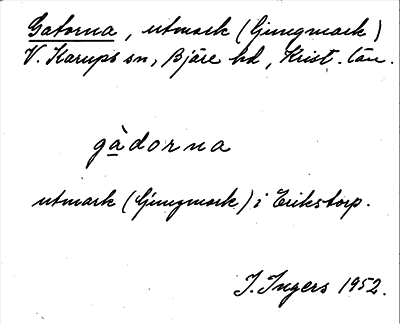 Gatorna, utmark (Ljungmark)
V. Karups sn, Bjäre hd, Krist. län.
gàdorna
utmark (Ljungmark) i Erikstorp.
I. Ingers 1952.